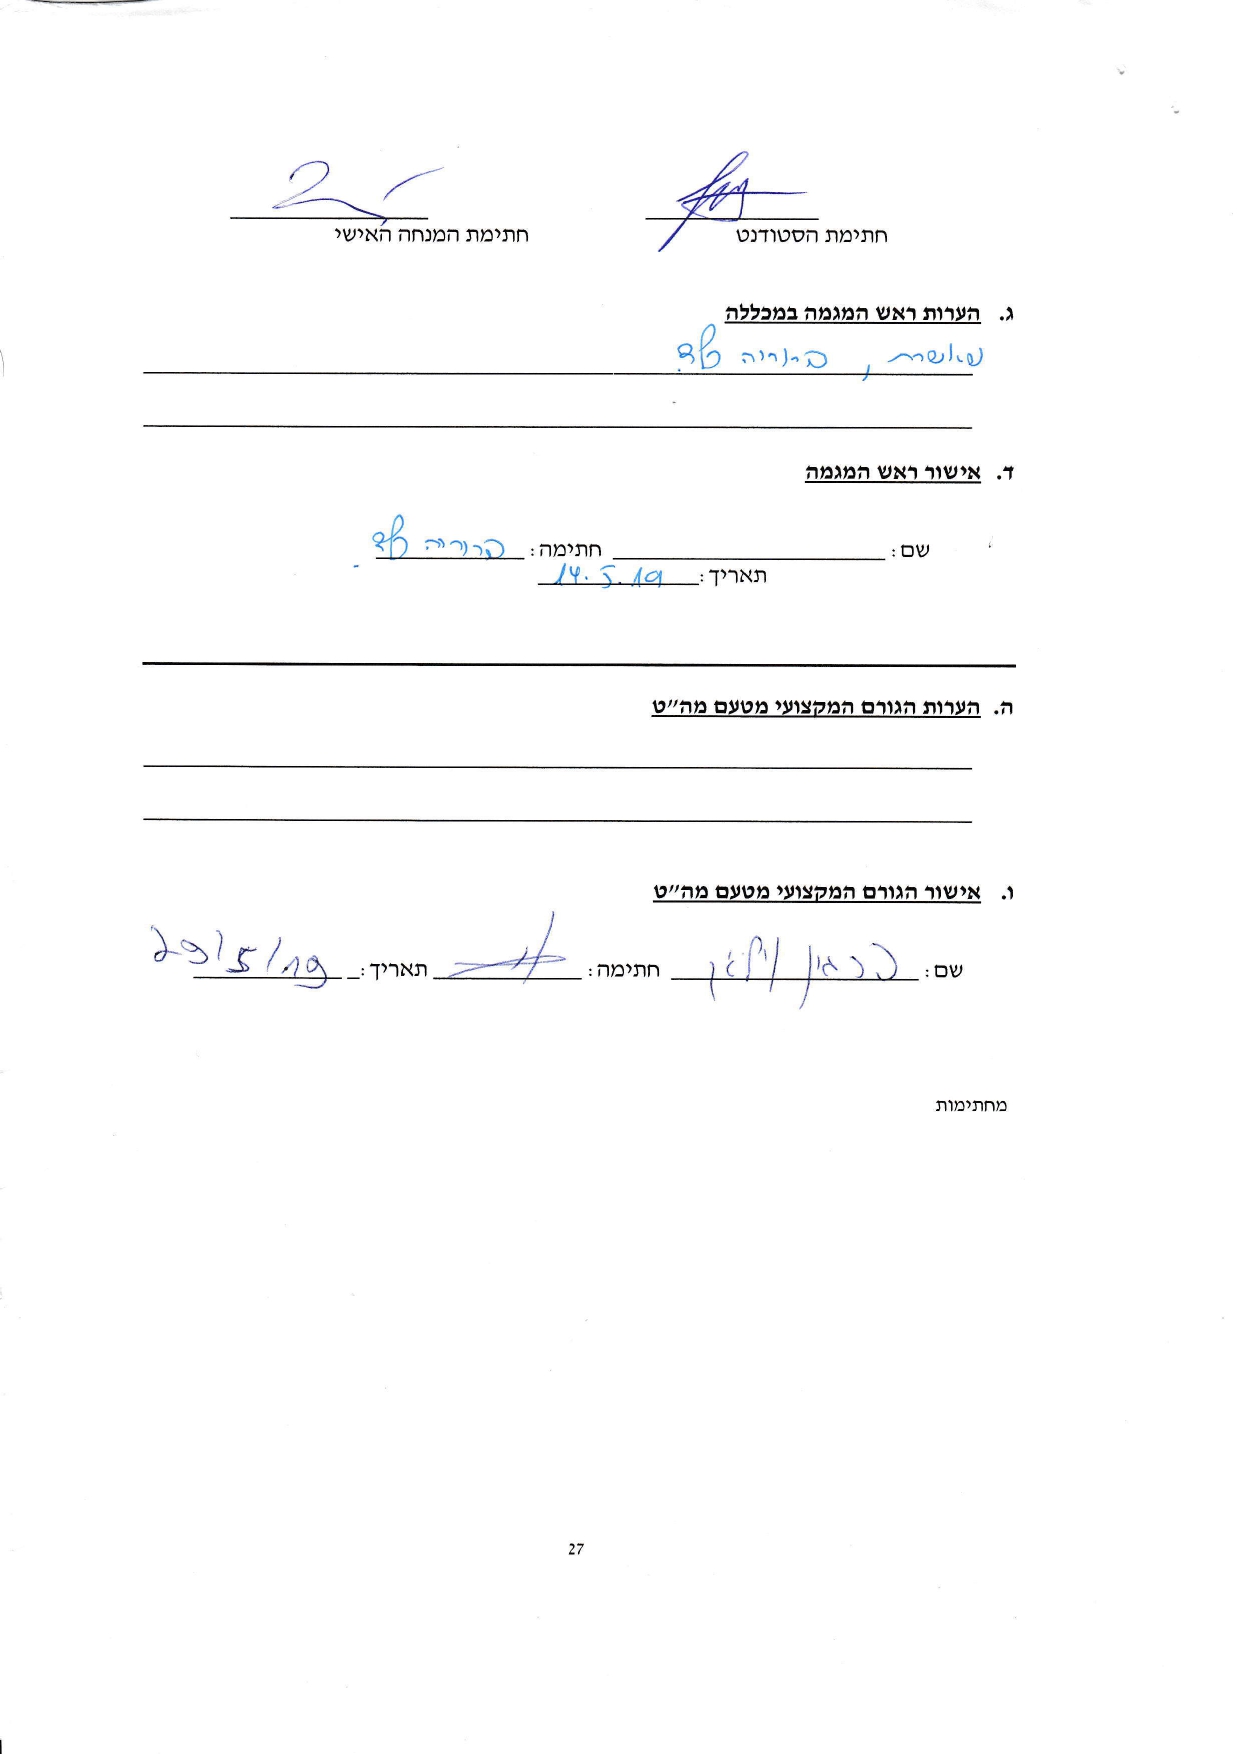 חתימת הסטודנט חתימת המנחה האישי
ג. הערות ראש המגמה במכללה
מאושרת,
ד. אישור ראש המגמה
שם: חתימה:
תאריך: 14.5.19
ה. הערות הגורם המקצועי מטעם מה״ט
ו. אישור הגורם המקצועי מטעם מה״ט
שם: חתימה: תאריך: 29/5/19
מחתימות
27